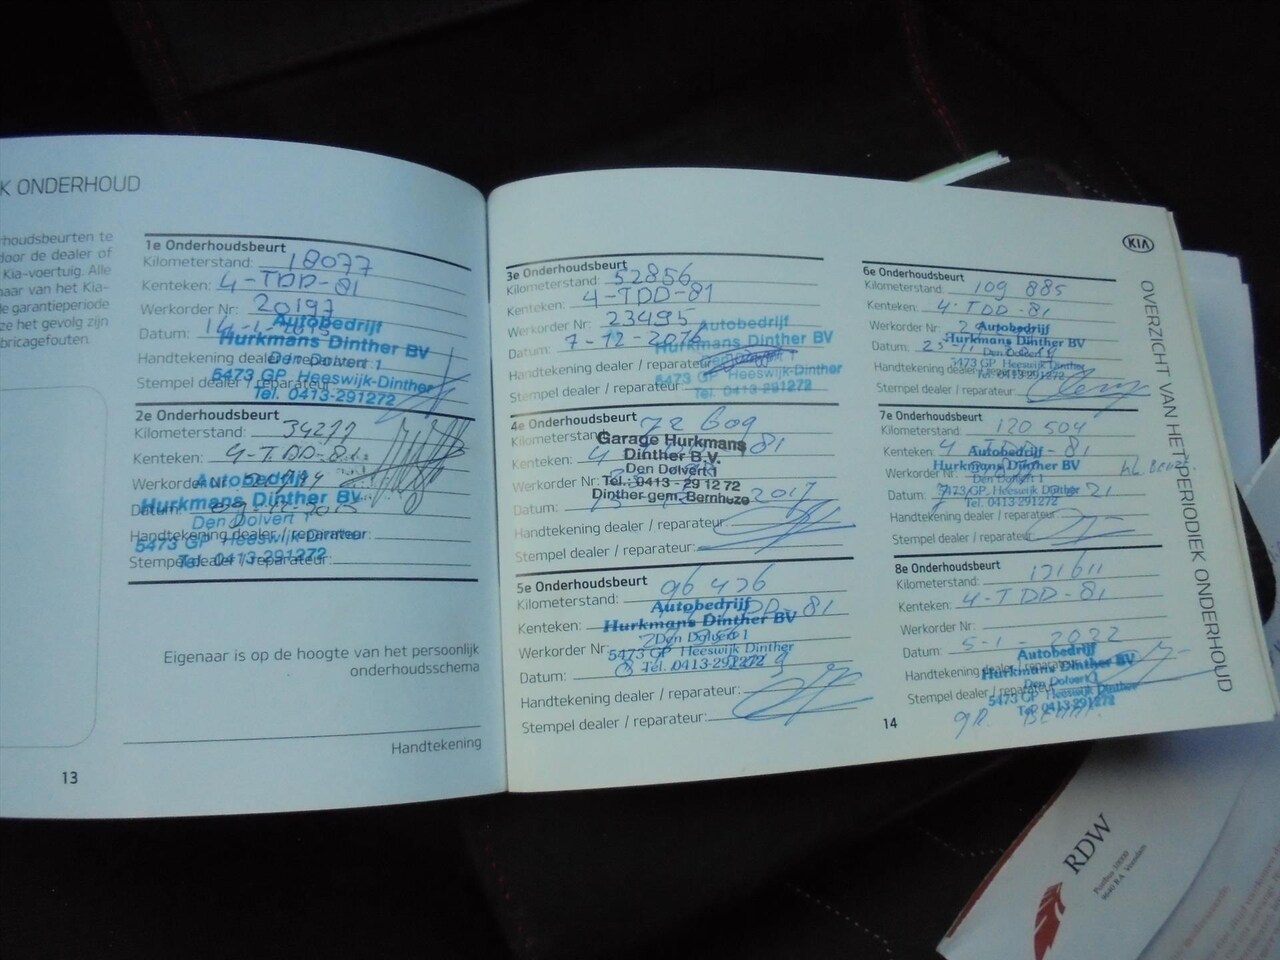 K ONDERHOUD
houdsbeurten te
door de dealer of
Kia-voertuig. Alle
naar van het Kia-
de garantieperiode
ze het gevolg zijn
bricagefouten.
1e Onderhoudsbeurt
Kilometerstand: 18077
Kenteken: 4-TDD-81
Werkorder Nr: 20197
Datum:
Autobedrijf
Hurkmans Dinther BV
Den Dolvert 1
5473 GP Heeswijk-Dinther
Tel. 0413-291272
Handtekening dealer / reparateur:
Stempel dealer / reparateur:
2e Onderhoudsbeurt
Kilometerstand: 34277
Kenteken: 4-TDD-81
Werkorder Nr:
Datum:
Autobedrijf
Hurkmans Dinther BV
Den Dolvert 1
5473 GP Heeswijk-Dinther
Tel. 0413-291272
Handtekening dealer / reparateur:
Stempel dealer / reparateur:
Eigenaar is op de hoogte van het persoonlijk
onderhoudsschema
Handtekening
13
3e Onderhoudsbeurt
Kilometerstand: 52856
Kenteken: 4-TDD-81
Werkorder Nr: 23495
Datum: 7-12-2016
Autobedrijf
Hurkmans Dinther BV
Den Dolvert 1
5473 GP Heeswijk-Dinther
Tel. 0413-291272
Handtekening dealer / reparateur:
Stempel dealer / reparateur:
4e Onderhoudsbeurt
Kilometerstand: 72 609
Kenteken: 4 81
Werkorder Nr:
Datum: 2017
Garage Hurkmans
Dinther B.V.
Den Dolvert 1
Tel.: 0413 - 29 12 72
Dinther gem. Bernheze
Handtekening dealer / reparateur:
Stempel dealer / reparateur:
5e Onderhoudsbeurt
Kilometerstand: 96 426
Kenteken: DD-81
Werkorder Nr:
Datum:
Autobedrijf
Hurkmans Dinther BV
Den Dolvert 1
5473 GP Heeswijk Dinther
Tel. 0413-291272
Handtekening dealer / reparateur:
Stempel dealer / reparateur:
6e Onderhoudsbeurt
Kilometerstand: 109 885
Kenteken: 4-TDD-81
Werkorder Nr:
Datum:
Autobedrijf
Hurkmans Dinther BV
Den Dolvert 1
5473 GP Heeswijk Dinther
Tel. 0413-291272
Handtekening dealer / reparateur:
Stempel dealer / reparateur:
7e Onderhoudsbeurt
Kilometerstand: 120 504
Kenteken: 4 TDD-81
Werkorder Nr:
Datum: 21
Autobedrijf
Hurkmans Dinther BV
Den Dolvert 1
5473 GP Heeswijk Dinther
Tel. 0413-291272
Handtekening dealer / reparateur:
Stempel dealer / reparateur:
8e Onderhoudsbeurt
Kilometerstand: 121611
Kenteken: 4-TDD-81
Werkorder Nr:
Datum: 5-1-2022
Autobedrijf
Hurkmans Dinther BV
Den Dolvert 1
5473 GP Heeswijk Dinther
Tel. 0413-291272
Handtekening dealer / reparateur:
Stempel dealer / reparateur:
14
KIA
OVERZICHT VAN HET PERIODIEK ONDERHOUD
RDW
Postbus 30000
9640 RA Veendam